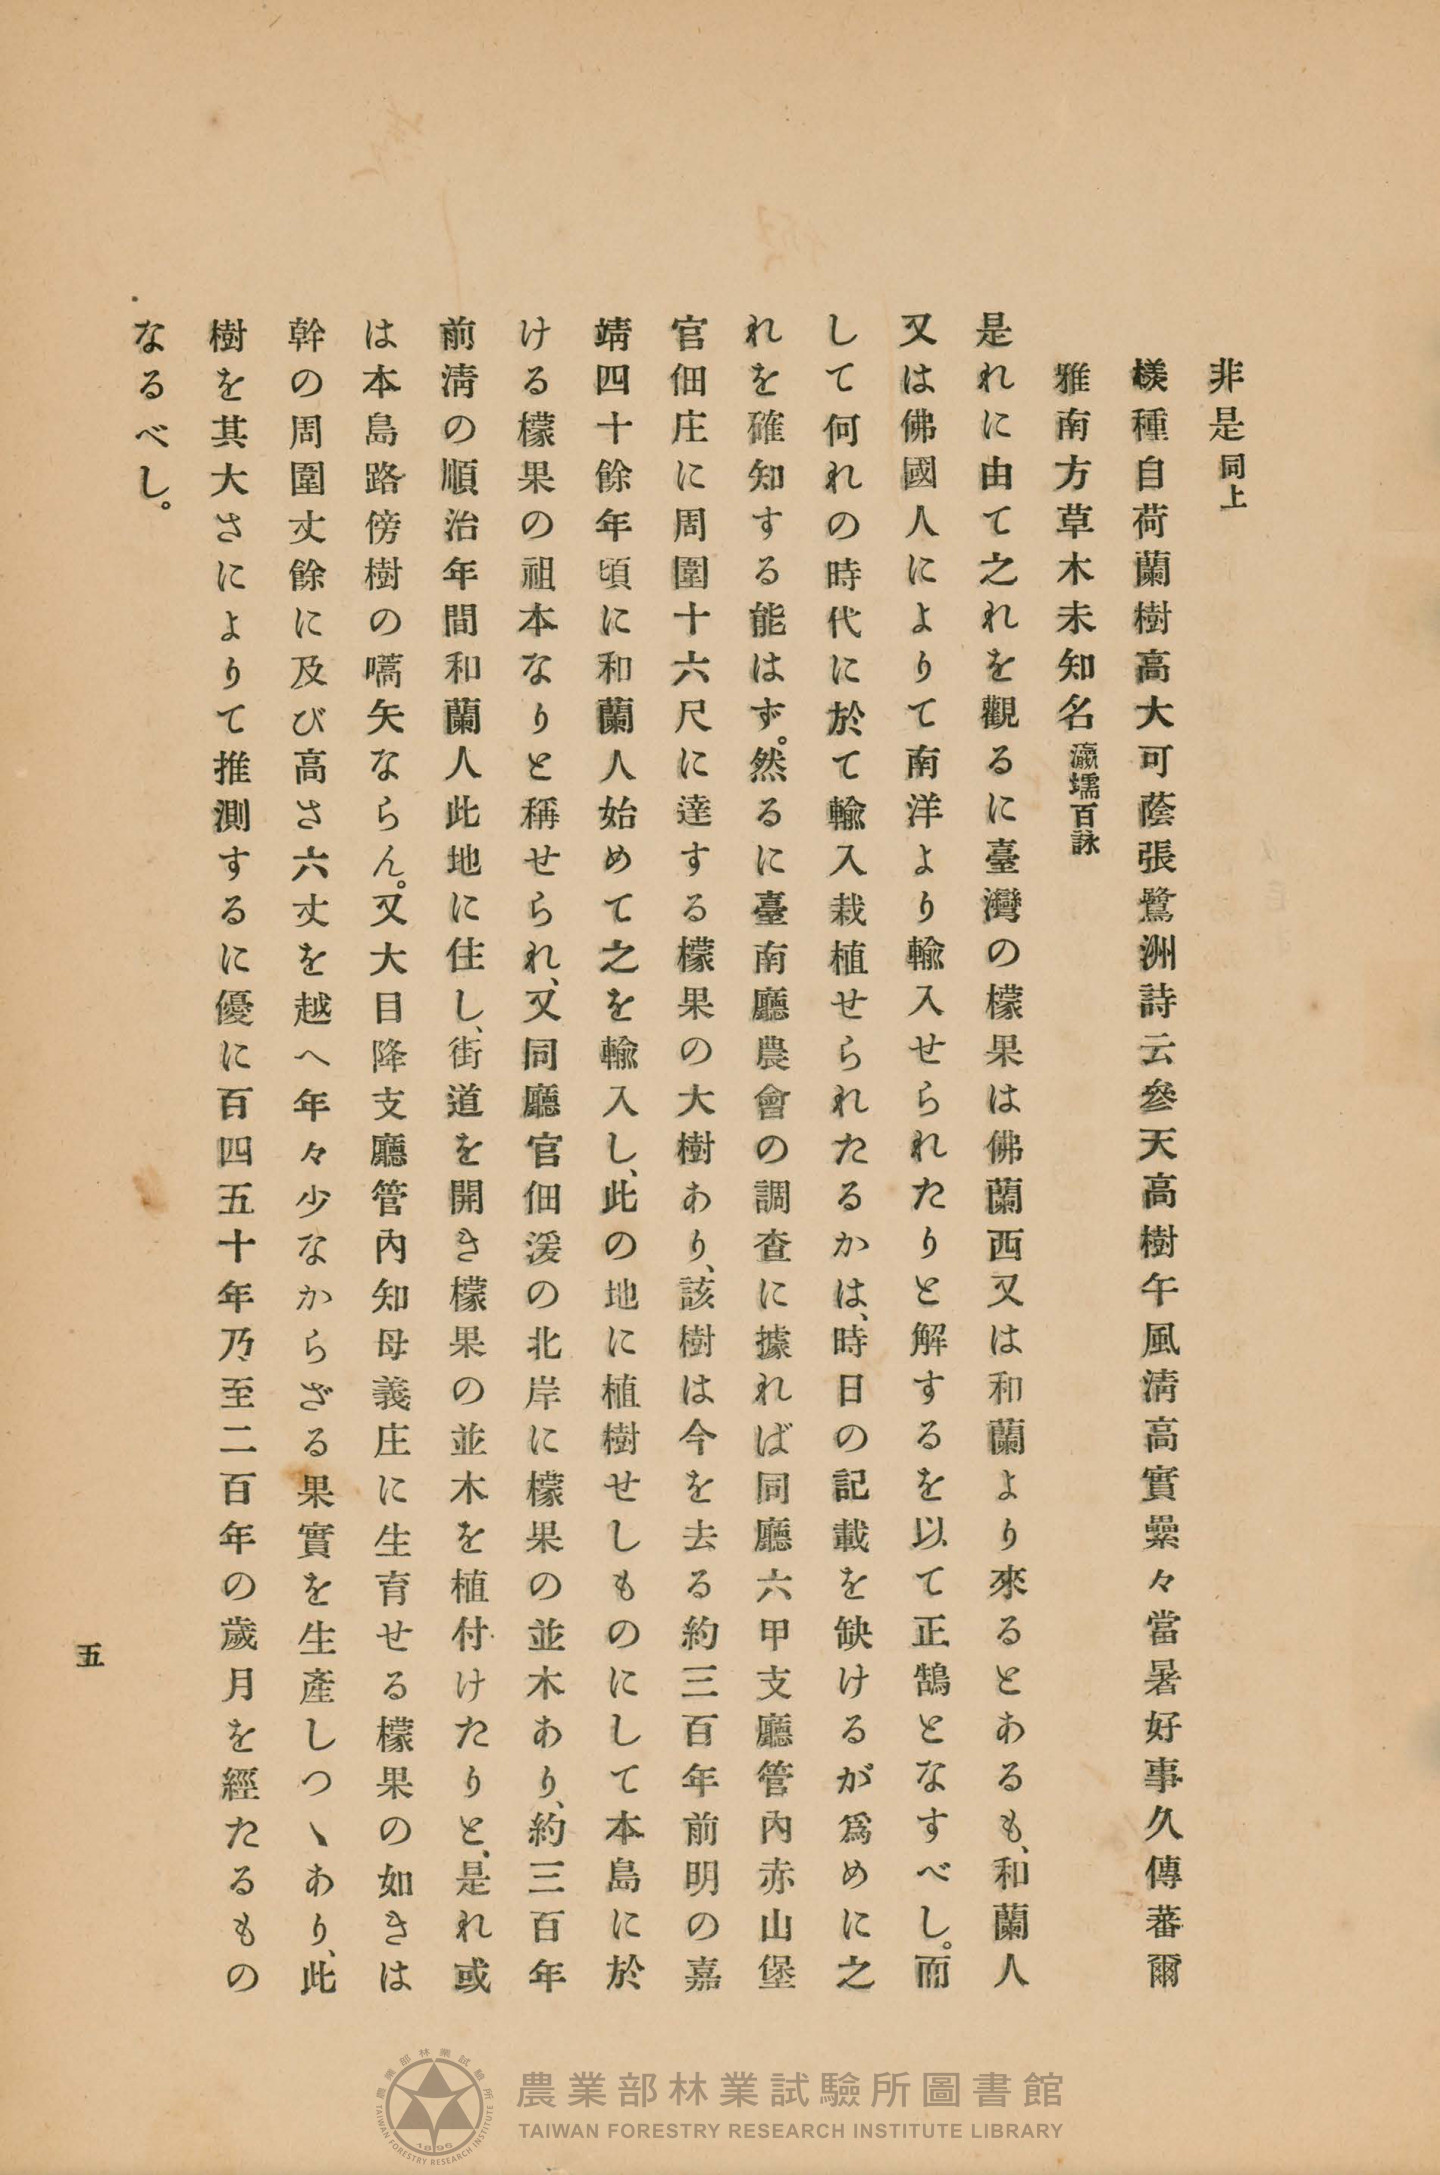 非是同上
樣種自荷蘭樹高大可蔭張鷺洲詩云參天高樹午風淸高實纍々當暑好事久傳蕃爾
雅南方草木未知名瀛壖百詠
是れに由て之れを觀るに臺灣の檬果は佛蘭西又は和蘭より來るとあるも、和蘭人
又は佛國人によりて南洋より輸入せられたりと解するを以て正鵠となすべし。而
して何れの時代に於て輸入栽植せられたるかは、時日の記載を缺けるが爲めに之
れを確知する能はず。然るに臺南廳農會の調査に據れば同廳六甲支廳管內赤山堡
官佃庄に周圍十六尺に達する檬果の大樹あり、該樹は今を去る約三百年前明の嘉
靖四十餘年頃に和蘭人始めて之を輸入し、此の地に植樹せしものにして本島に於
ける檬果の祖本なりと稱せられ、又同廳官佃溪の北岸に檬果の並木あり、約三百年
前淸の順治年間和蘭人此地に住し、街道を開き檬果の並木を植付けたりと、是れ或
は本島路傍樹の嚆矢ならん。又大目降支廳管內知母義庄に生育せる檬果の如きは
幹の周圍丈餘に及び高さ六丈を越へ年々少なからざる果實を生產しつゝあり、此
樹を其大さによりて推測するに優に百四五十年乃至二百年の歲月を經たるもの
なるべし。
五
農業部林業試驗所圖書館
TAIWAN FORESTRY RESEARCH INSTITUTE LIBRARY
農業部林業試驗所
TAIWAN FORESTRY RESEARCH INSTITUTE
1896